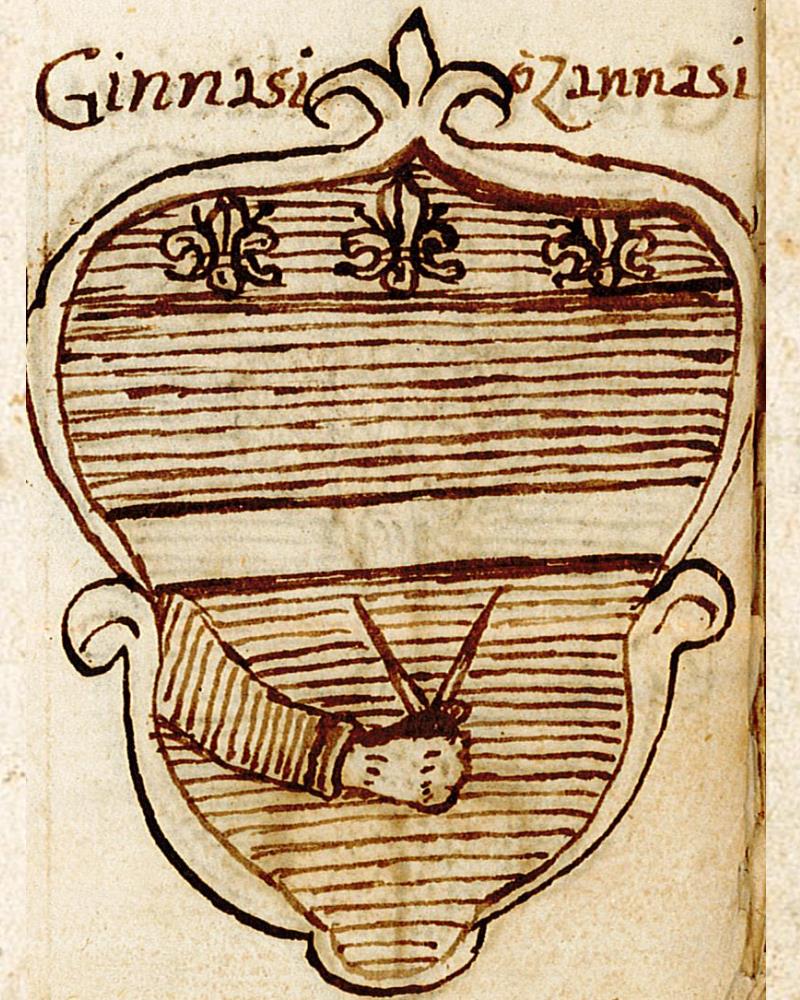 Ginnasi ò Zannasi